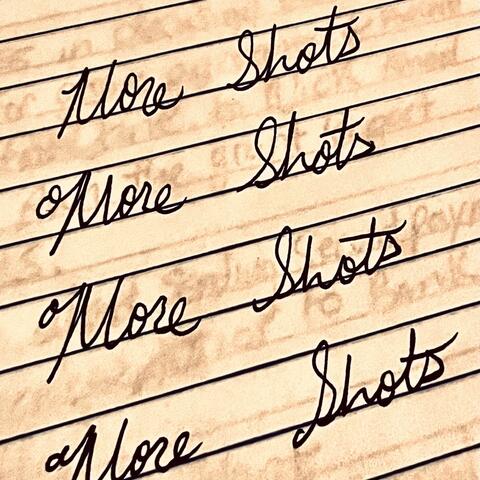 More Shots
More Shots
More Shots
More Shots